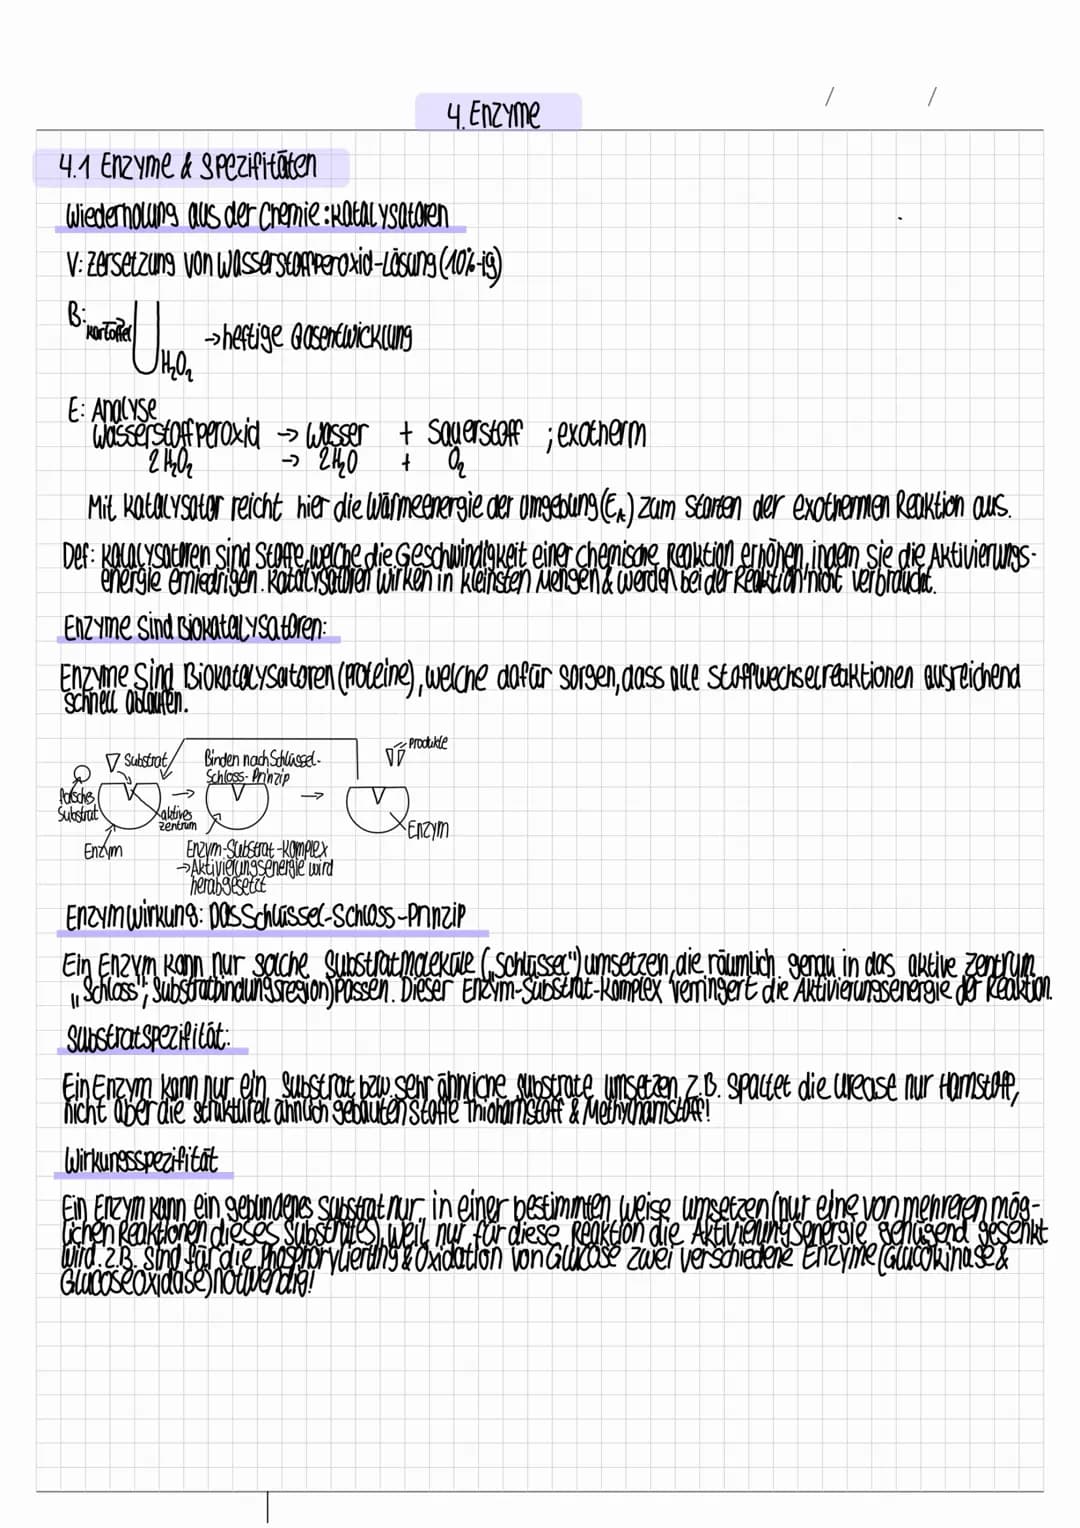 4. Enzyme
4.1 Enzyme & Spezifitäten
Wiederholung aus der Chemie: Katalysatoren
V: Zersetzung von Wasserstoffperoxid-Lösung (10%-ig)
B: Kartoffel
H₂O₂
→ heftige Gasentwicklung
E: Analyse
Wasserstoffperoxid → Wasser + Sauerstoff ; exotherm
2 H₂O₂ → 2 H₂O + O₂
Mit Katalysator reicht hier die Wärmeenergie der Umgebung (EA) zum Starten der exothermen Reaktion aus.
Def: Katalysatoren sind Stoffe, welche die Geschwindigkeit einer chemische Reaktion erhöhen, indem sie die Aktivierungs-
energie erniedrigen. Katalysatoren wirken in kleinsten Mengen & werden bei der Reaktion nicht verbraucht.
Enzyme sind Biokatalysatoren:
Enzyme sind Biokatalysatoren (Proteine), welche dafür sorgen, dass alle Stoffwechselreaktionen ausreichend
schnell ablaufen.
Substrat
Binden nach Schlüssel-
Schloss-Prinzip
Produkte
falsches
Substrat
aktives
Zentrum
Enzym
Enzym
Enzym-Substrat-Komplex
→ Aktivierungsenergie wird
herabgesetzt
Enzymwirkung: Das Schlüssel-Schloss-Prinzip
Ein Enzym kann nur solche Substratmoleküle („Schlüssel") umsetzen, die räumlich genau in das aktive Zentrum
„Schloss"; Substratbindungsregion) passen. Dieser Enzym-Substrat-Komplex verringert die Aktivierungsenergie der Reaktion.
Substratspezifität:
Ein Enzym kann nur ein Substrat bzw. sehr ähnliche Substrate umsetzen, z.B. spaltet die Urease nur Harnstoff,
nicht aber die strukturell ähnlich gebauten Stoffe Thioharnstoff & Methylharnstoff!
Wirkungsspezifität
Ein Enzym kann ein gebundenes Substrat nur in einer bestimmten Weise umsetzen (nur eine von mehreren mög-
lichen Reaktionen dieses Substrates), weil nur für diese Reaktion die Aktivierungsenergie genügend gesenkt
wird. z.B. sind für die Phosphorylierung & Oxidation von Glukose zwei verschiedene Enzyme (Glucokinase &
Glucoseoxidase) notwendig!